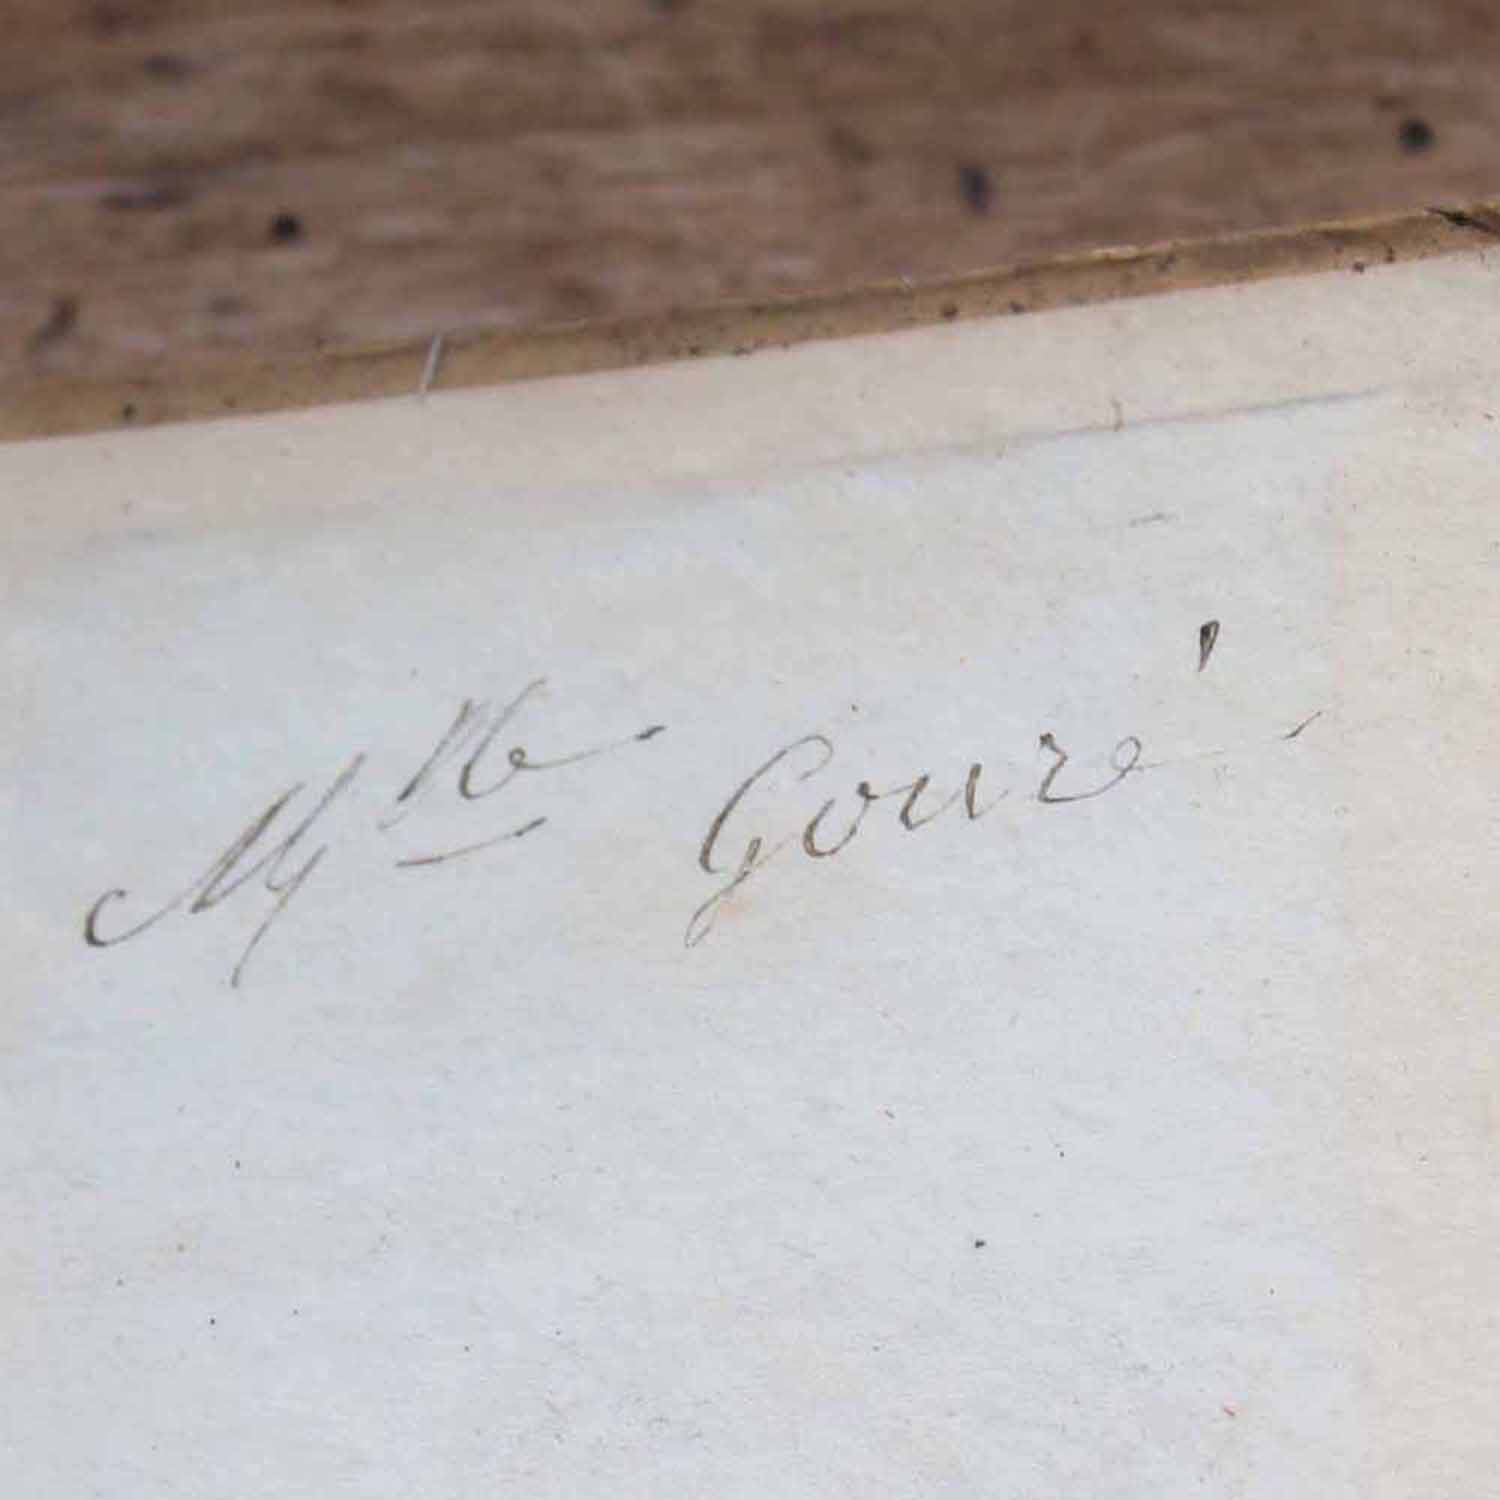 Mlle Gouré